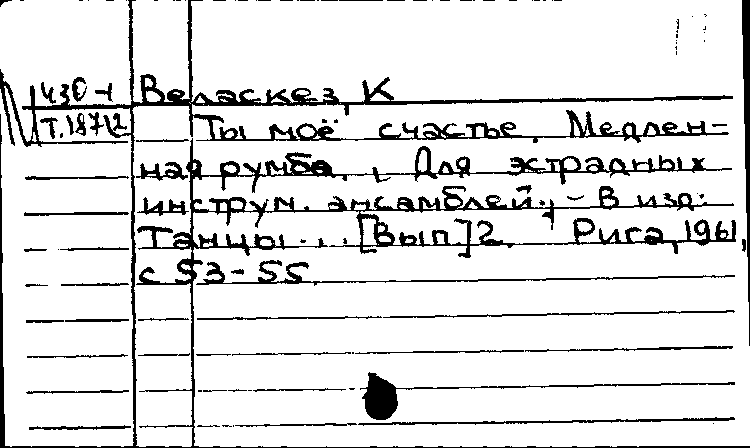 430-1 Веласкез, К
Т.187/2 Ты моё счастье. Медлен-
ная румба. Для эстрадных
инструм. ансамблей. - В изд:
Танцы... [Вып.]2. Рига, 1961,
с 53-55.